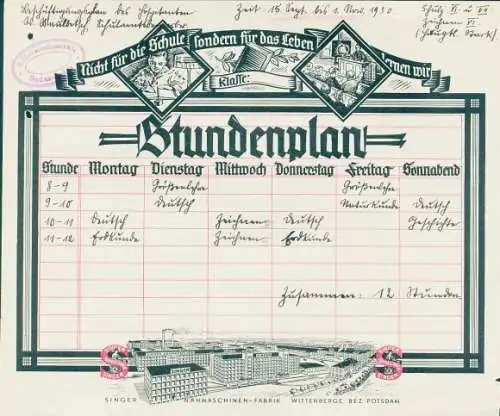 Zeit: 15. Sept. bis 1. Nov. 1930
Nicht für die Schule sondern für das Leben lernen wir
Klasse:
Stundenplan
Stunde Montag Dienstag Mittwoch Donnerstag Freitag Sonnabend
8-9
9-10 Deutsch Naturkunde Deutsch
10-11 Deutsch Zeichnen Deutsch Geschichte
11-12 Erdkunde Zeichnen Erdkunde
Zusammen: 12 Stunden
S S
SINGER NÄHMASCHINEN-FABRIK WITTENBERGE BEZ. POTSDAM